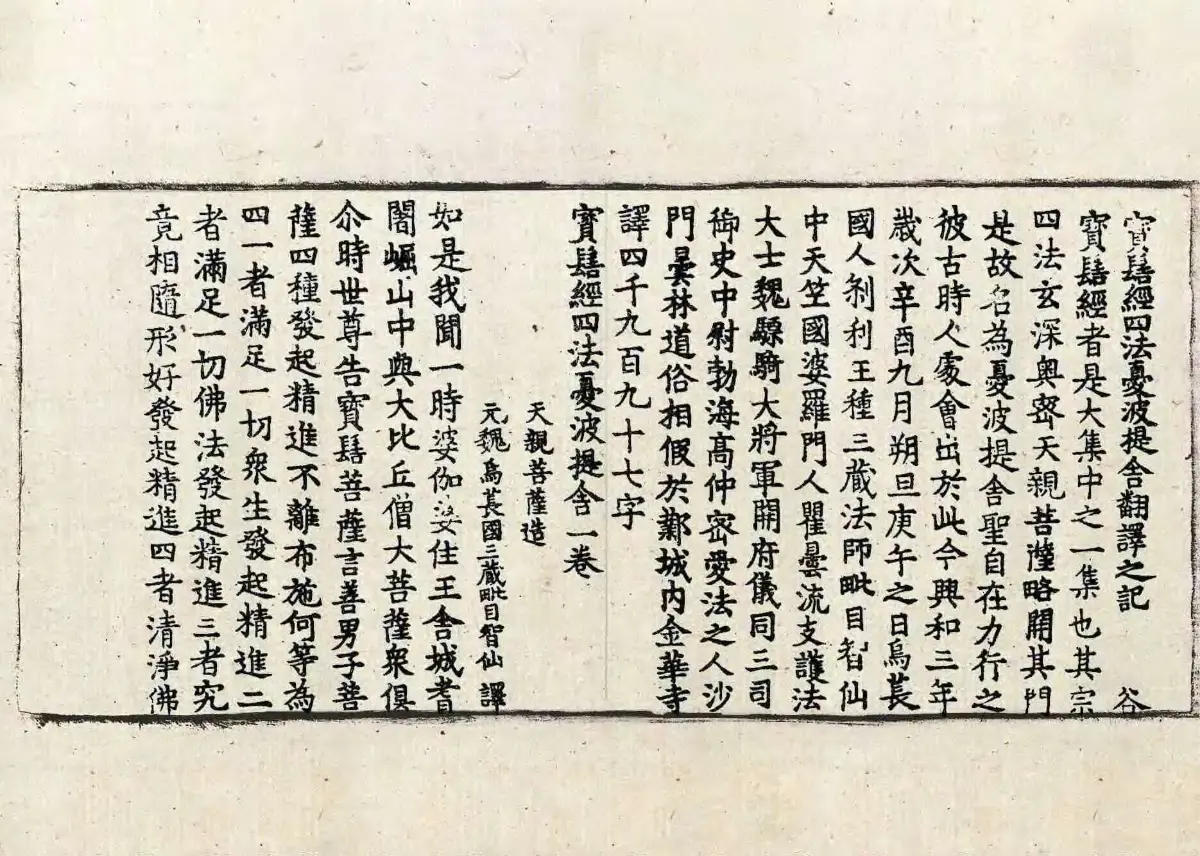 寳髻經四法憂波提舍翻譯之記 谷
寳髻經者是大集中之一集也其宗
四法玄深奥密天親菩薩略開其門
是故名為憂波提舍聖自在力行之
彼古時人處會出於此今興和三年
歳次辛酉九月朔旦庚午之日烏萇
國人刹利王種三藏法師毗目智仙
中天竺國婆羅門人瞿曇流支護法
大士魏驃騎大將軍開府儀同三司
御史中尉勃海高仲密愛法之人沙
門曇林道俗相假於鄴城内金華寺
譯四千九百九十七字
寳髻經四法憂波提舍一卷
天親菩薩造
元魏烏萇國三藏毗目智仙 譯
如是我聞一時婆伽婆住王舍城耆
闍崛山中與大比丘僧大菩薩衆俱
尒時世尊告寳髻菩薩言善男子菩
薩四種發起精進不離布施何等為
四一者滿足一切衆生發起精進二
者滿足一切佛法發起精進三者究
竟相隨形好發起精進四者清淨佛